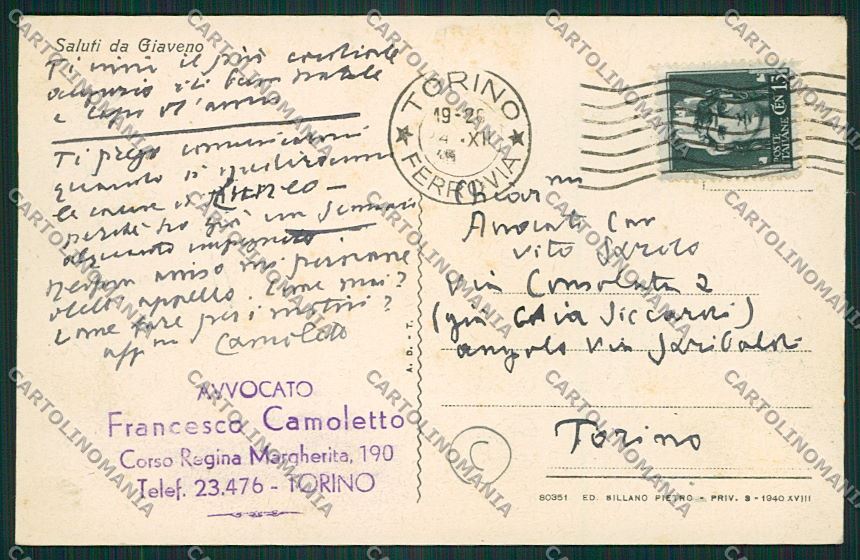 Saluti da Giaveno
Ti invii il più cordiale
augurio di buon Natale
e Capo d'anno
Ti prego comunicarmi
quando si
le cause di Cuneo -
perché ho già un Gennaio
alquanto impegnato
Nessun avviso mi pervenne
dell'appello. Come mai?
Come fare per i motivi?
aff mo Camoletto
AVVOCATO
Francesco Camoletto
Corso Regina Margherita, 190
Telef. 23.476 - TORINO
A. D. - T.
TORINO
19-2
XII
FERROVIA
POSTE ITALIANE CEN 15
Chiar mo
Avvocato Cav
Vito
Via Consolata 2
(già Casa Siccardi)
angolo via Garibaldi
Torino
C
80351 ED. SILLANO PIETRO - PRIV. S - 1940 XVIII
CARTOLINOMANIA